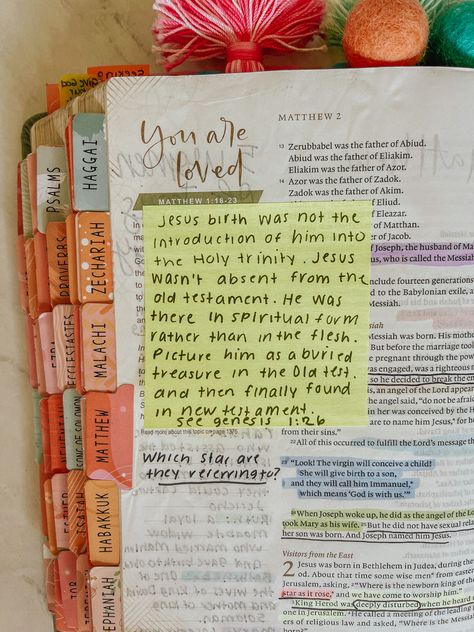 PSALMS
PROVERBS
EZRA
ECCLESIASTES
SONG OF SOLOMON
ESTHER
ISAIAH
HAGGAI
ZECHARIAH
MALACHI
MATTHEW
HABAKKUK
EPHANIAH
You are
loved
MATTHEW 1:18-23
Jesus birth was not the
introduction of him into
the Holy trinity. Jesus
wasn't absent from the
old testament. He was
there in spiritual form
rather than in the flesh.
Picture him as a buried
treasure in the Old test.
and then finally found
in new testament.
see genesis 1:26
Read more about this topic on page 1375
Which star are
they referring to?
MATTHEW 2
13 Zerubbabel was the father of Abiud.
Abiud was the father of Eliakim.
Eliakim was the father of Azor.
14 Azor was the father of Zadok.
Zadok was the father of Akim.
of Eliud.
of Eleazar.
of Matthan.
of Jacob.
of Joseph, the husband of Ma
us, who is called the Messiah
include fourteen generations
to the Babylonian exile, a
Messiah
Messiah was born. His mothe
But before the marriage took
pregnant through the power
engaged, was a righteous
so he decided to break the en
an angel of the Lord appear
the angel said, "do not be afraid
her was conceived by the H
from their sins."
22 All of this occurred to fulfill the Lord's message th
23 "Look! The virgin will conceive a child!
She will give birth to a son,
and they will call him Immanuel,
which means 'God is with us.'"
When Joseph woke up, he did as the angel of the Lo
took Mary as his wife. 25 But he did not have sexual rela
her son was born. And Joseph named him Jesus.
Visitors from the East
2 Jesus was born in Bethlehem in Judea, during the
od. About that time some wise men from easte
asking, 2 "Where is the newborn king of
star as it rose, and we have come to worship him."
3 King Herod was deeply disturbed when he heard
one in Jerusalem. 4 He called a meeting of the leadi
ers of religious law and asked, "Where is the Mess